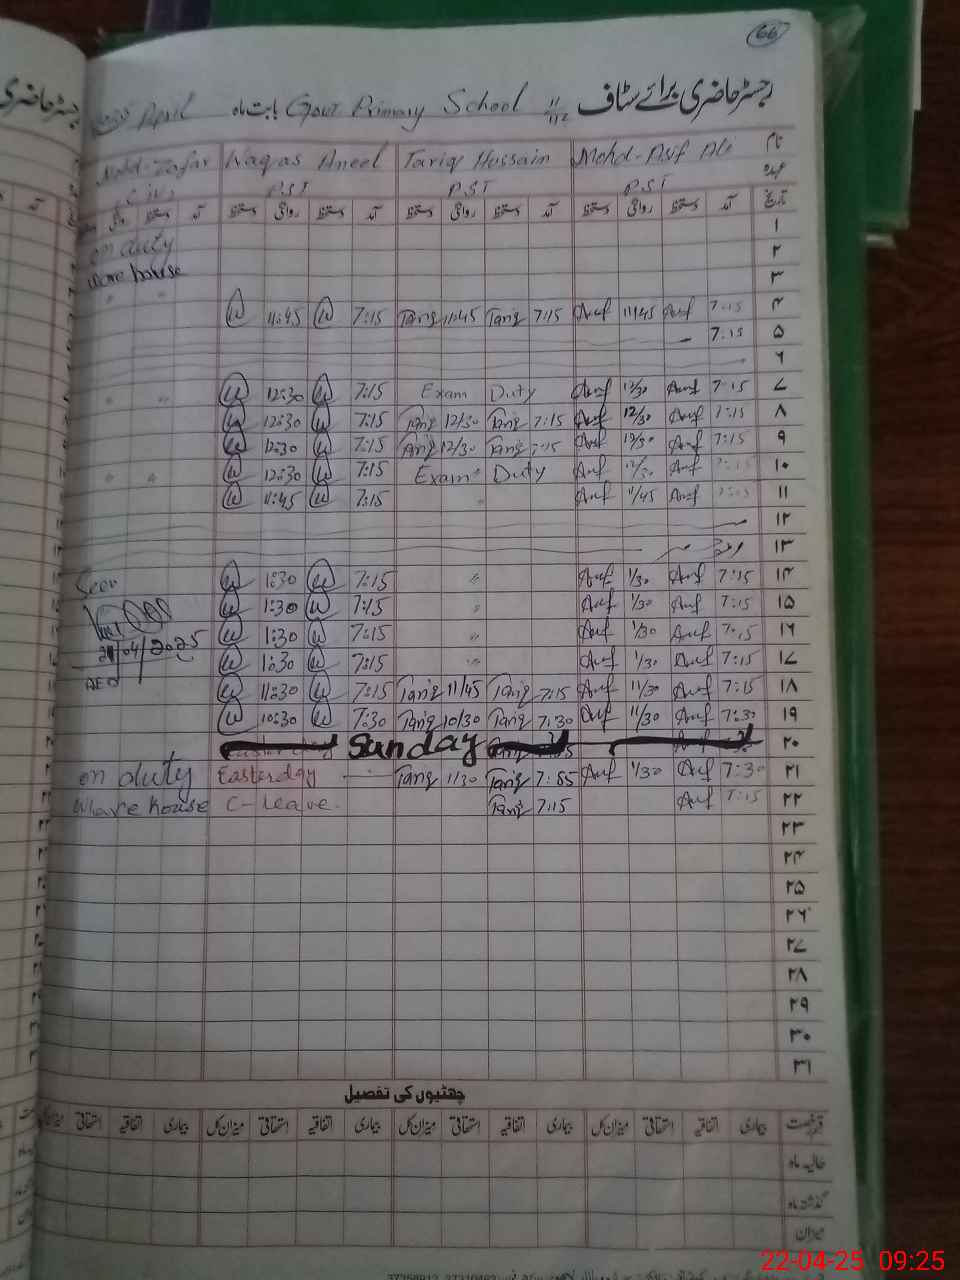 66
رجسٹر حاضری برائے سٹاف
Govt Primary School
بابت ماہ April
نام Mohd-Asif Ali Tariq Hussain Waqas Aneel Mohd-Zafar
عہدہ P.S.T P.S.T P.S.T
تاریخ آمد دستخط روانگی دستخط آمد دستخط روانگی دستخط آمد دستخط روانگی دستخط آمد دستخط روانگی
۱ on duty
۲ ware house
۳ " "
۴ 7:15 Asif 11/45 Asif 7:15 Tariq 11:45 Tariq 7:15 W 11:45 W
۵ 7:15
۶
۷ 7:15 Asif 12/30 Asif Exam Duty 7:15 W 12:30 W " "
۸ 7:15 Asif 12/30 Asif 7:15 Tariq 12/30 Tariq 7:15 W 12:30 W
۹ 7:15 Asif 12/30 Asif 7:15 Tariq 12/30 Tariq 7:15 W 12:30 W
۱۰ 7:15 Asif 12/30 Asif Exam Duty 7:15 W 12:30 W " "
۱۱ 7:15 Asif 11/45 Asif " 7:15 W 11:45 W
۱۲
۱۳
۱۴ 7:15 Asif 1/30 Asif " 7:15 W 1:30 W Seen
۱۵ 7:15 Asif 1/30 Asif " 7:15 W 1:30 W
۱۶ 7:15 Asif 1/30 Asif " 7:15 W 1:30 W 21/04/2025
۱۷ 7:15 Asif 1/30 Asif " 7:15 W 1:30 W AEO
۱۸ 7:15 Asif 11/30 Asif 7:15 Tariq 11/45 Tariq 7:15 W 11:30 W
۱۹ 7:30 Asif 11/30 Asif 7:30 Tariq 10/30 Tariq 7:30 W 10:30 W
۲۰ Sunday
۲۱ 7:30 Asif 1/30 Asif 7:55 Tariq 1/30 Tariq Easterday on duty
۲۲ 7:15 Asif 7:15 Tariq C-leave Whare house
۲۳
۲۴
۲۵
۲۶
۲۷
۲۸
۲۹
۳۰
۳۱
چھٹیوں کی تفصیل
قسم رخصت بیماری اتفاقیہ استحقاقی میزان کل بیماری اتفاقیہ استحقاقی میزان کل بیماری اتفاقیہ استحقاقی میزان کل بیماری اتفاقیہ استحقاقی میزان کل
حالیہ ماہ
گذشتہ ماہ
میزان
22-04-25 09:25